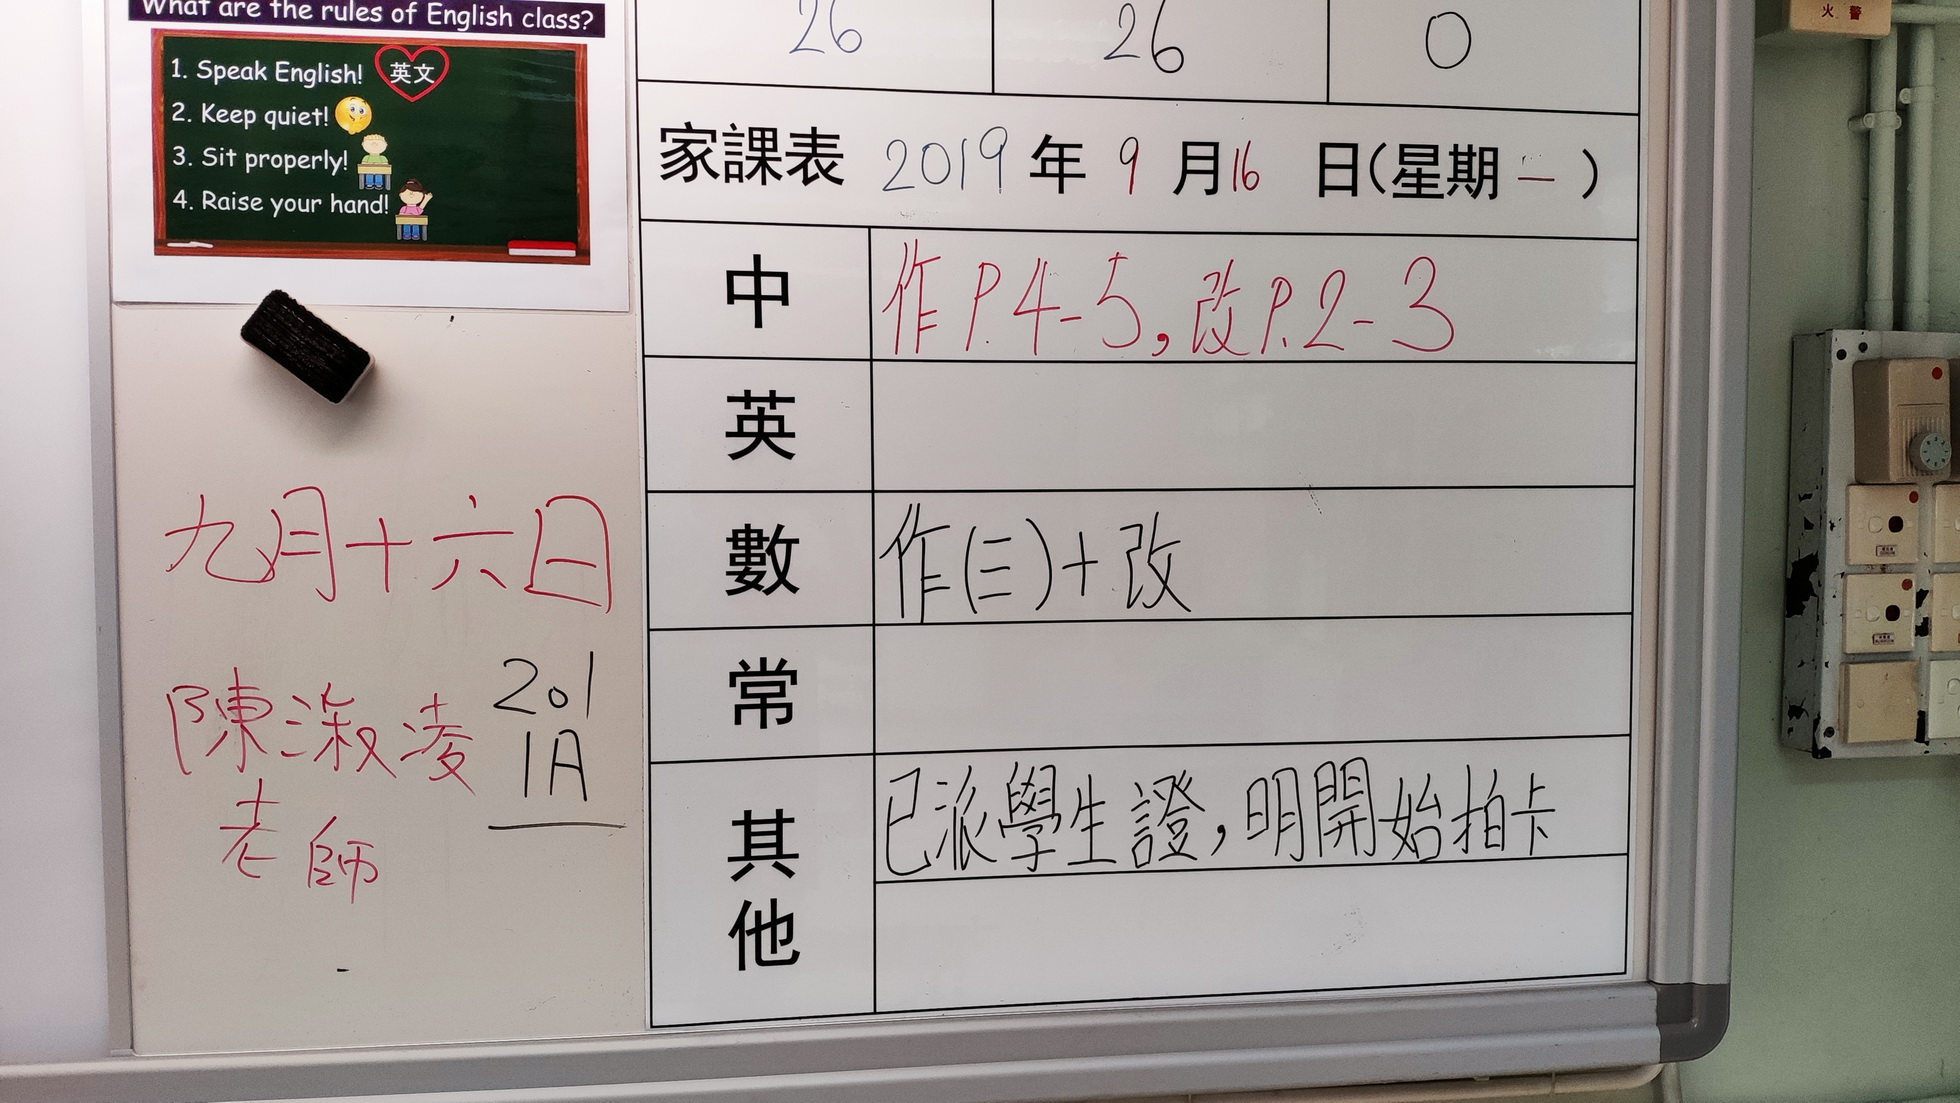 What are the rules of English class?
1. Speak English! 英文
2. Keep quiet!
3. Sit properly!
4. Raise your hand!
九月十六日
陳淑凌
老師
201
1A
26 26 0
家課表 2019 年 9 月 16 日(星期一)
中 作P.4-5,改P.2-3
英
數 作(三)+改
常
其他 已派學生證,明開始拍卡
火警